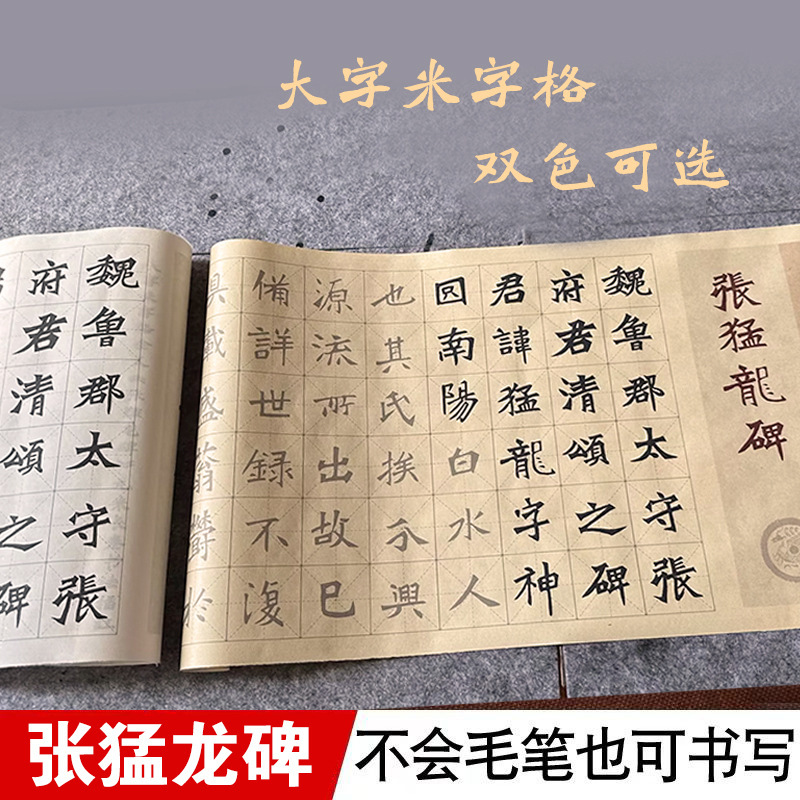 大字米字格
双色可选
張猛龍碑
魏魯郡太守張
府君清頌之碑
君諱猛龍字神
囧南陽白水人
也其氏挨分興
源流所出故巳
備詳世録不復
具載盛蓊欝於
魏魯郡太守張
府君清頌之碑
张猛龙碑
不会毛笔也可书写